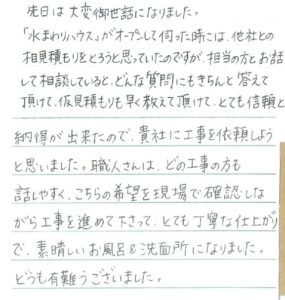 先日は大変御世話になりました。
「水まわりハウス」がオープンして伺った時には、他社との
相見積もりをとろうと思っていたのですが、担当の方とお話
して相談していると、どんな質問にもきちんと答えて
頂けて、仮見積もりも早く教えて頂けて、とても信頼と
納得が出来たので、貴社に工事を依頼しよう
と思いました。職人さんは、どの工事の方も
話しやすく、こちらの希望を現場で確認しな
がら工事を進めて下さって、とても丁寧な仕上がり
で、素晴しいお風呂&洗面所になりました。
どうも有難うございました。